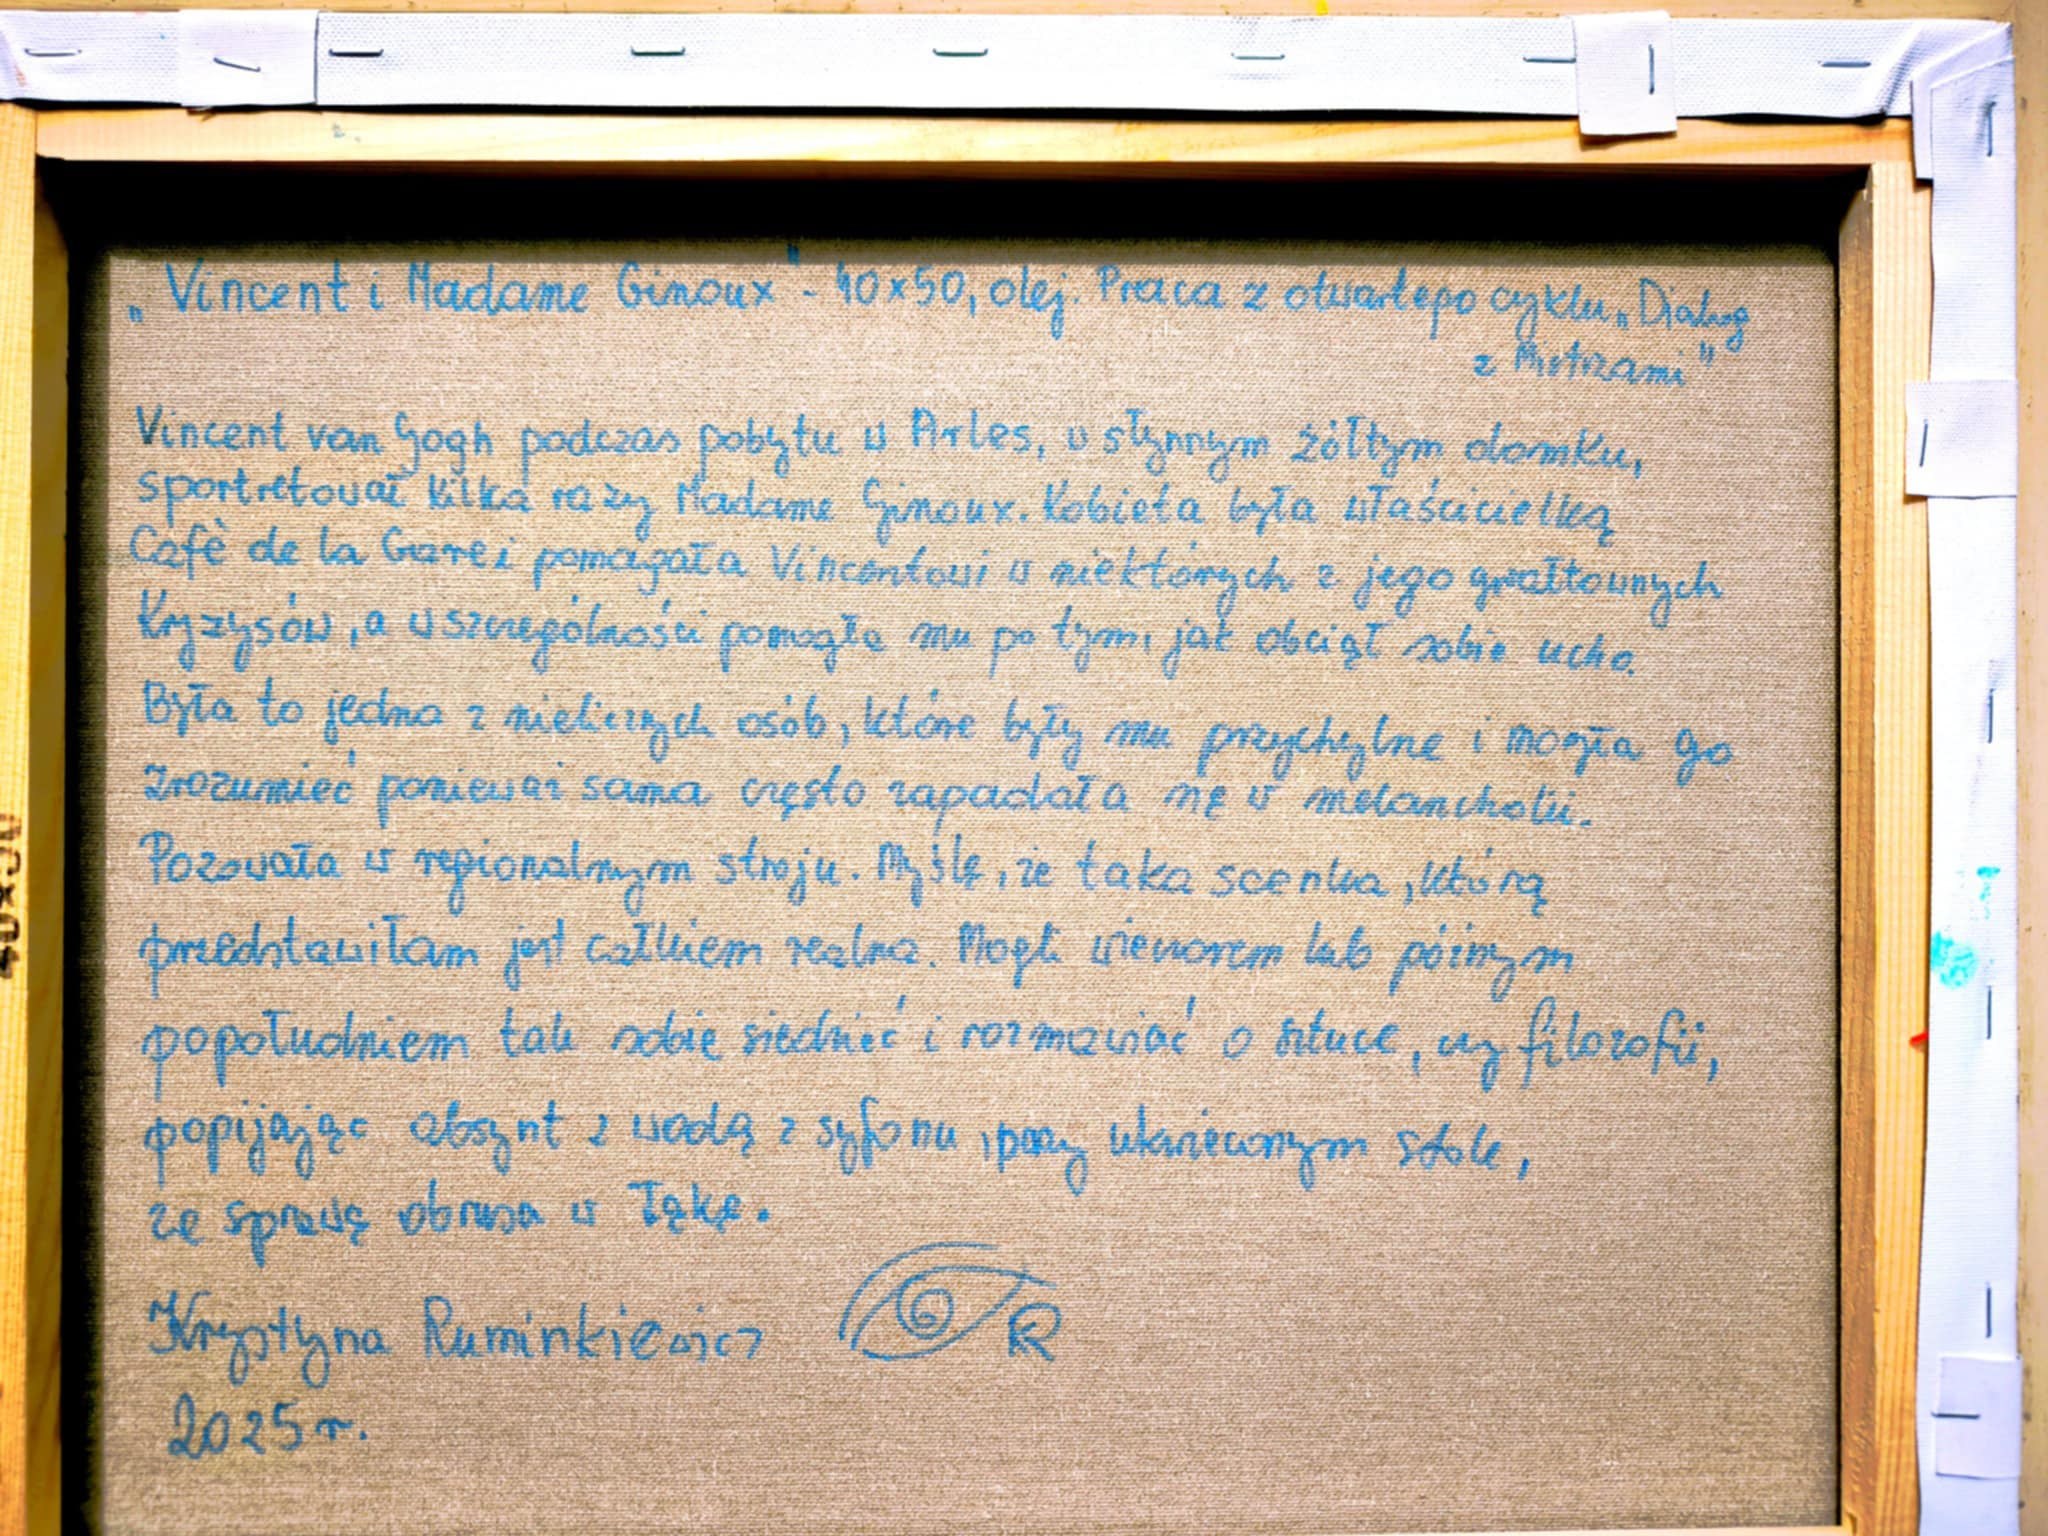 „Vincent i Madame Ginoux" - 40x50, olej. Praca z otwartego cyklu „Dialog
z Mistrzami"
Vincent van Gogh podczas pobytu w Arles, w słynnym żółtym domku,
sportretował kilka razy Madame Ginoux. Kobieta była właścicielką
Cafè de la Gare i pomagała Vincentowi w niektórych z jego gwałtownych
kryzysów, a w szczególności pomogła mu po tym, jak obciął sobie ucho.
Była to jedna z nielicznych osób, które były mu przychylne i mogła go
zrozumieć ponieważ sama często zapadała się w melancholii.
Pozowała w regionalnym stroju. Myślę, że taka scenka, którą
przedstawiłam jest całkiem realna. Mogli wieczorem lub późnym
popołudniem tak sobie siedzieć i rozmawiać o sztuce, czy filozofii,
popijając absynt z wodą z syfonu, przy ukwieconym stole,
ze sprawą obrusa w łąkę.
Krystyna Ruminkiewicz
R
2025 r.
40x50